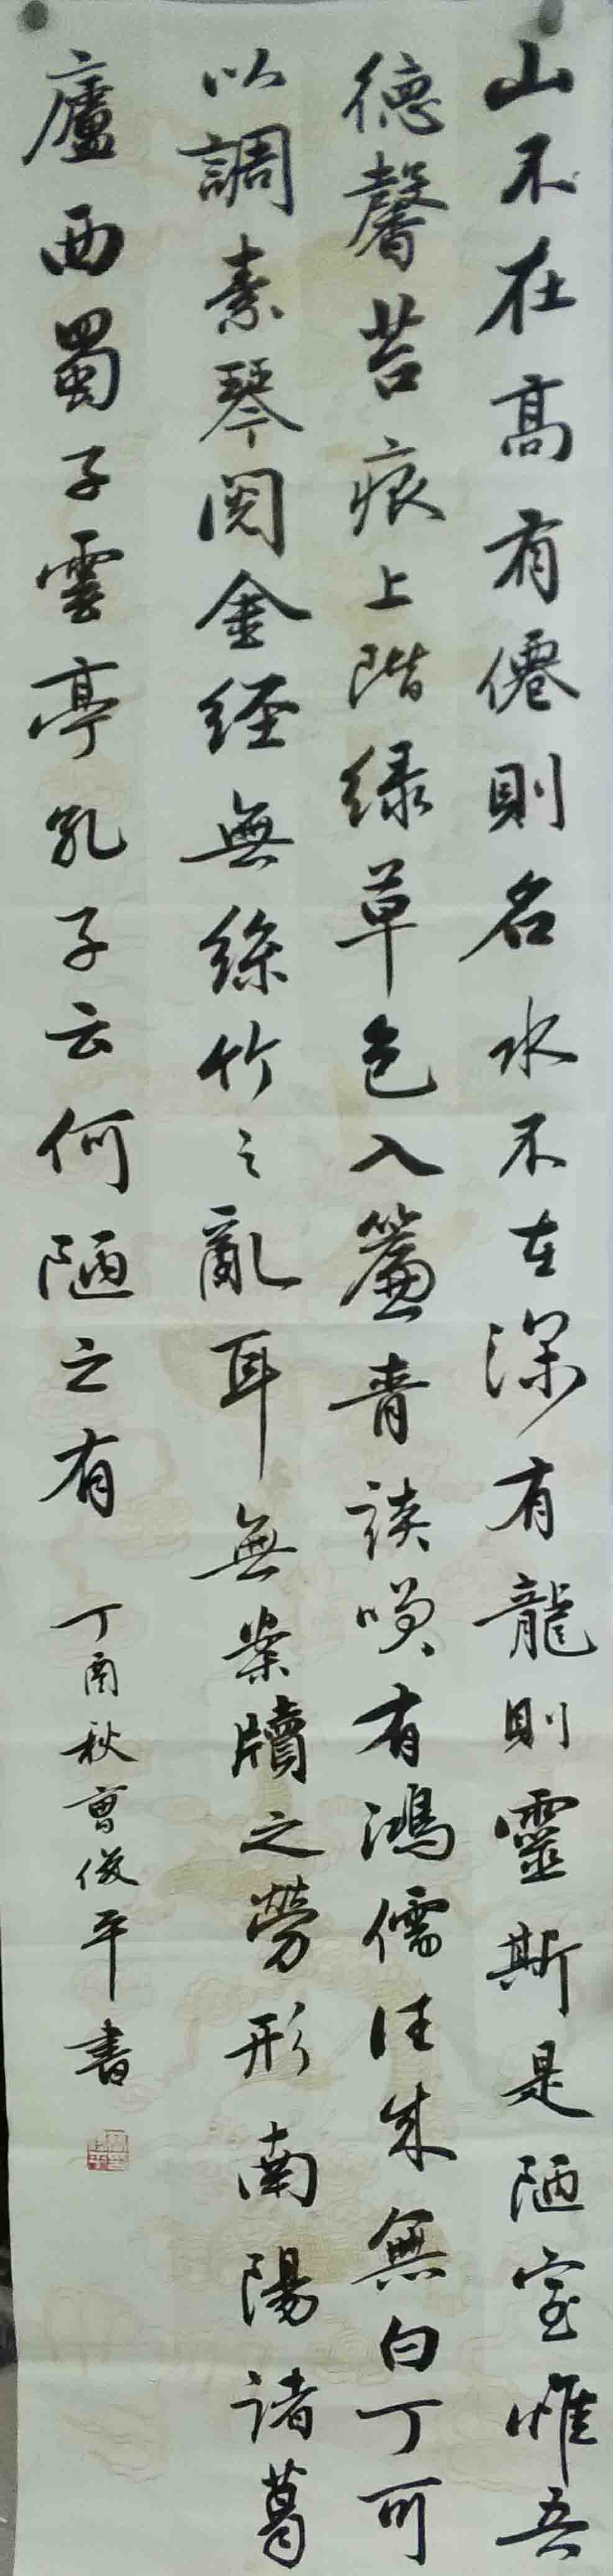 山不在高有僊則名水不在深有龍則靈斯是陋室惟吾
德馨苔痕上階绿草色入簾青談唉有鴻儒往來無白丁可
以調素琴閱金經無絲竹之亂耳無案牘之勞形南陽諸葛
廬西蜀子雲亭孔子云何陋之有
丁酉秋曹俊平書